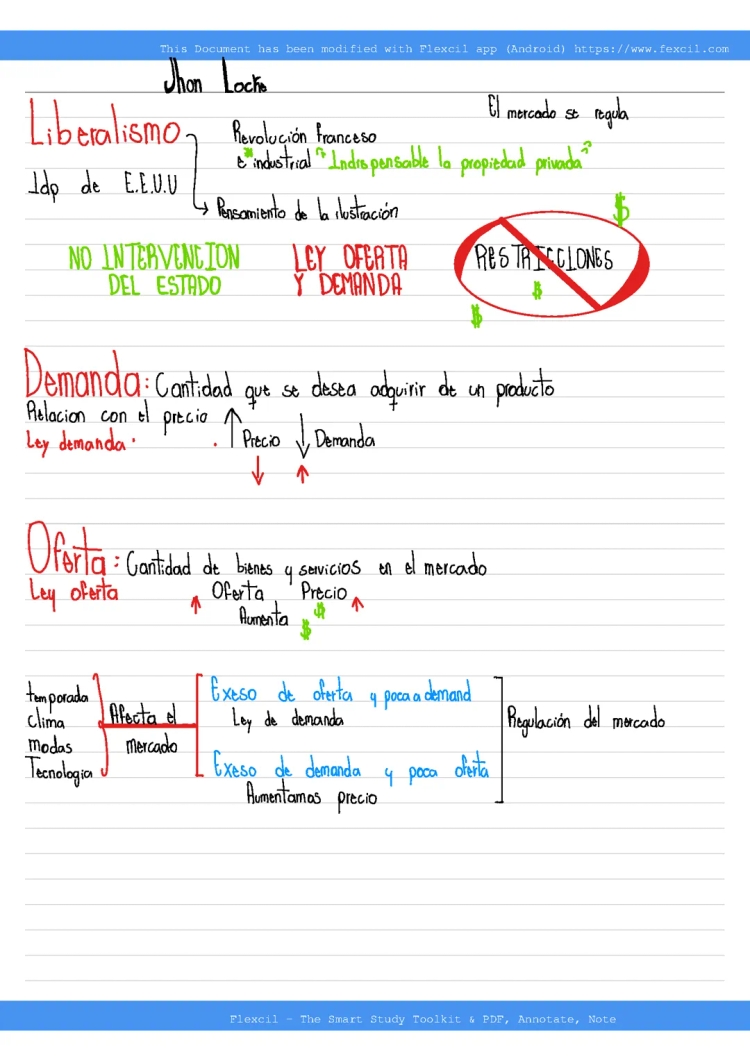 This Document has been modified with Flexcil app (Android) https://www.fexcil.com
Jhon Locke
El mercado se regula
Liberalismo
Revolución franceso
e industrial "Indispensable la propiedad privada"
Idp de E.E.U.U
Pensamiento de la ilustración
$
NO INTERVENCION
DEL ESTADO
LEY OFERTA
Y DEMANDA
RESTRICCIONES
$
$
Demanda: Cantidad que se desea adquirir de un producto
Relacion con el precio
Ley demanda. . ↑ Precio ↓ Demanda
↓ ↑
Oferta: Cantidad de bienes y servicios en el mercado
Ley oferta ↑ Oferta Precio ↑
Aumenta $ $
temporada
clima
modas
Tecnologia
Afecta el
mercado
Exeso de oferta y poca a demand
Ley de demanda
Exeso de demanda y poca oferta
Aumentamos precio
Regulación del mercado
Flexcil - The Smart Study Toolkit & PDF, Annotate, Note